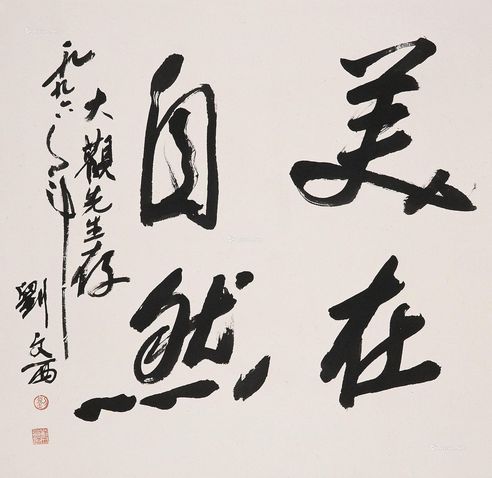 美在
自然
大觀先生存
一九九六年
劉文西